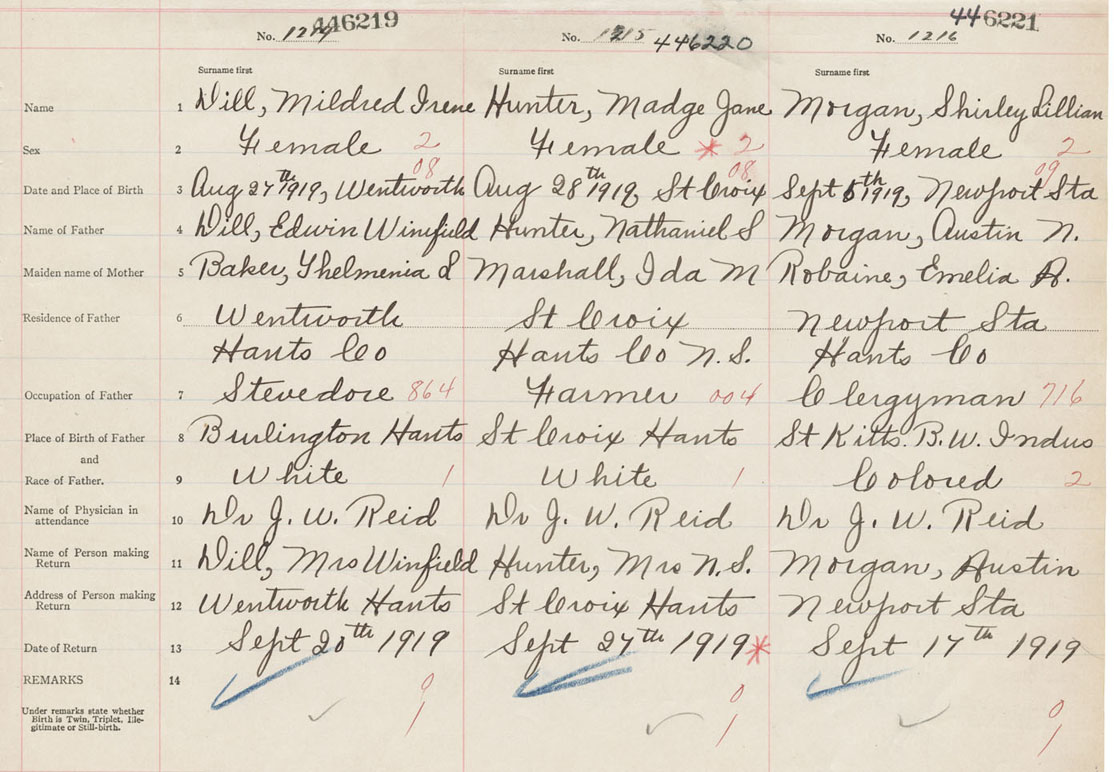 446219 446221
No. 1214 No. 1215 446220 No. 1216
Surname first Surname first Surname first
Name 1 Dill, Mildred Irene Hunter, Madge Jane Morgan, Shirley Lillian
Sex 2 Female 2 Female * 2 Female 2
08 08 09
Date and Place of Birth 3 Aug 27th 1919, Wentworth Aug 28th 1919, St Croix Sept 5th 1919, Newport Sta
Name of Father 4 Dill, Edwin Winifield Hunter, Nathaniel S Morgan, Austin N.
Maiden name of Mother 5 Baker, Thelmenia L Marshall, Ida M Robaine, Emelia A.
Residence of Father 6 Wentworth St Croix Newport Sta
Hants Co Hants Co N.S. Hants Co
Occupation of Father 7 Stevedore 864 Farmer 004 Clergyman 716
Place of Birth of Father 8 Burlington Hants St Croix Hants St Kitts. B.W. Indus
and
Race of Father. 9 White 1 White 1 Colored 2
Name of Physician in
attendance 10 Dr J. W. Reid Dr J. W. Reid Dr J. W. Reid
Name of Person making
Return 11 Dill, Mrs Winfield Hunter, Mrs N.S. Morgan, Austin
Address of Person making
Return 12 Wentworth Hants St Croix Hants Newport Sta
Date of Return 13 Sept 20th 1919 Sept 27th 1919 * Sept 17th 1919
REMARKS 14
0 0 0
Under remarks state whether
Birth is Twin, Triplet, Ille-
gitimate or Still-birth.
1 1 1